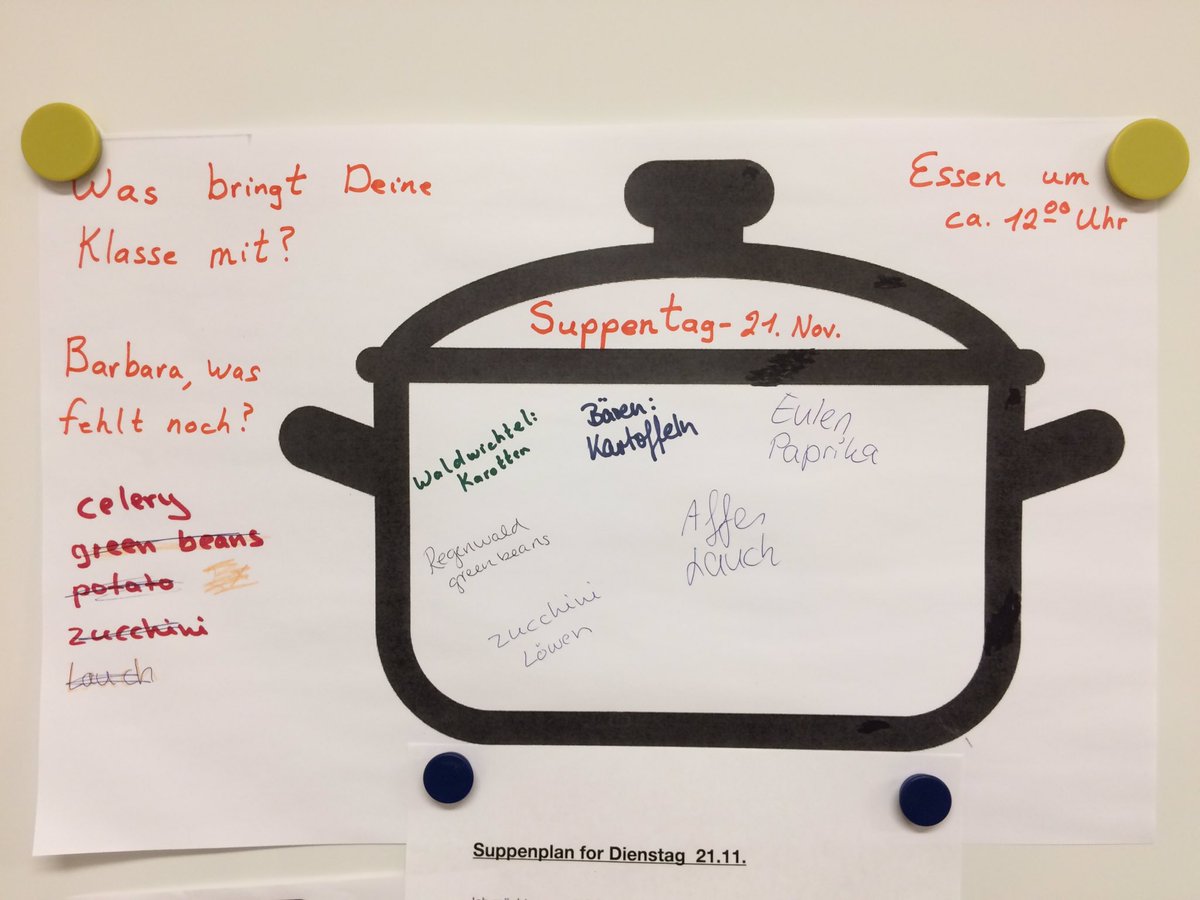 Was bringt Deine
Klasse mit?
Essen um
ca. 12⁰⁰ Uhr
Suppentag - 21. Nov.
Barbara, was
fehlt noch?
celery
green beans
potato
zucchini
Lauch
Waldwichtel:
Karotten
Bären:
Kartoffeln
Eulen
Paprika
Regenwald
green beans
Affen
Lauch
zucchini
Löwen
Suppenplan for Dienstag 21.11.